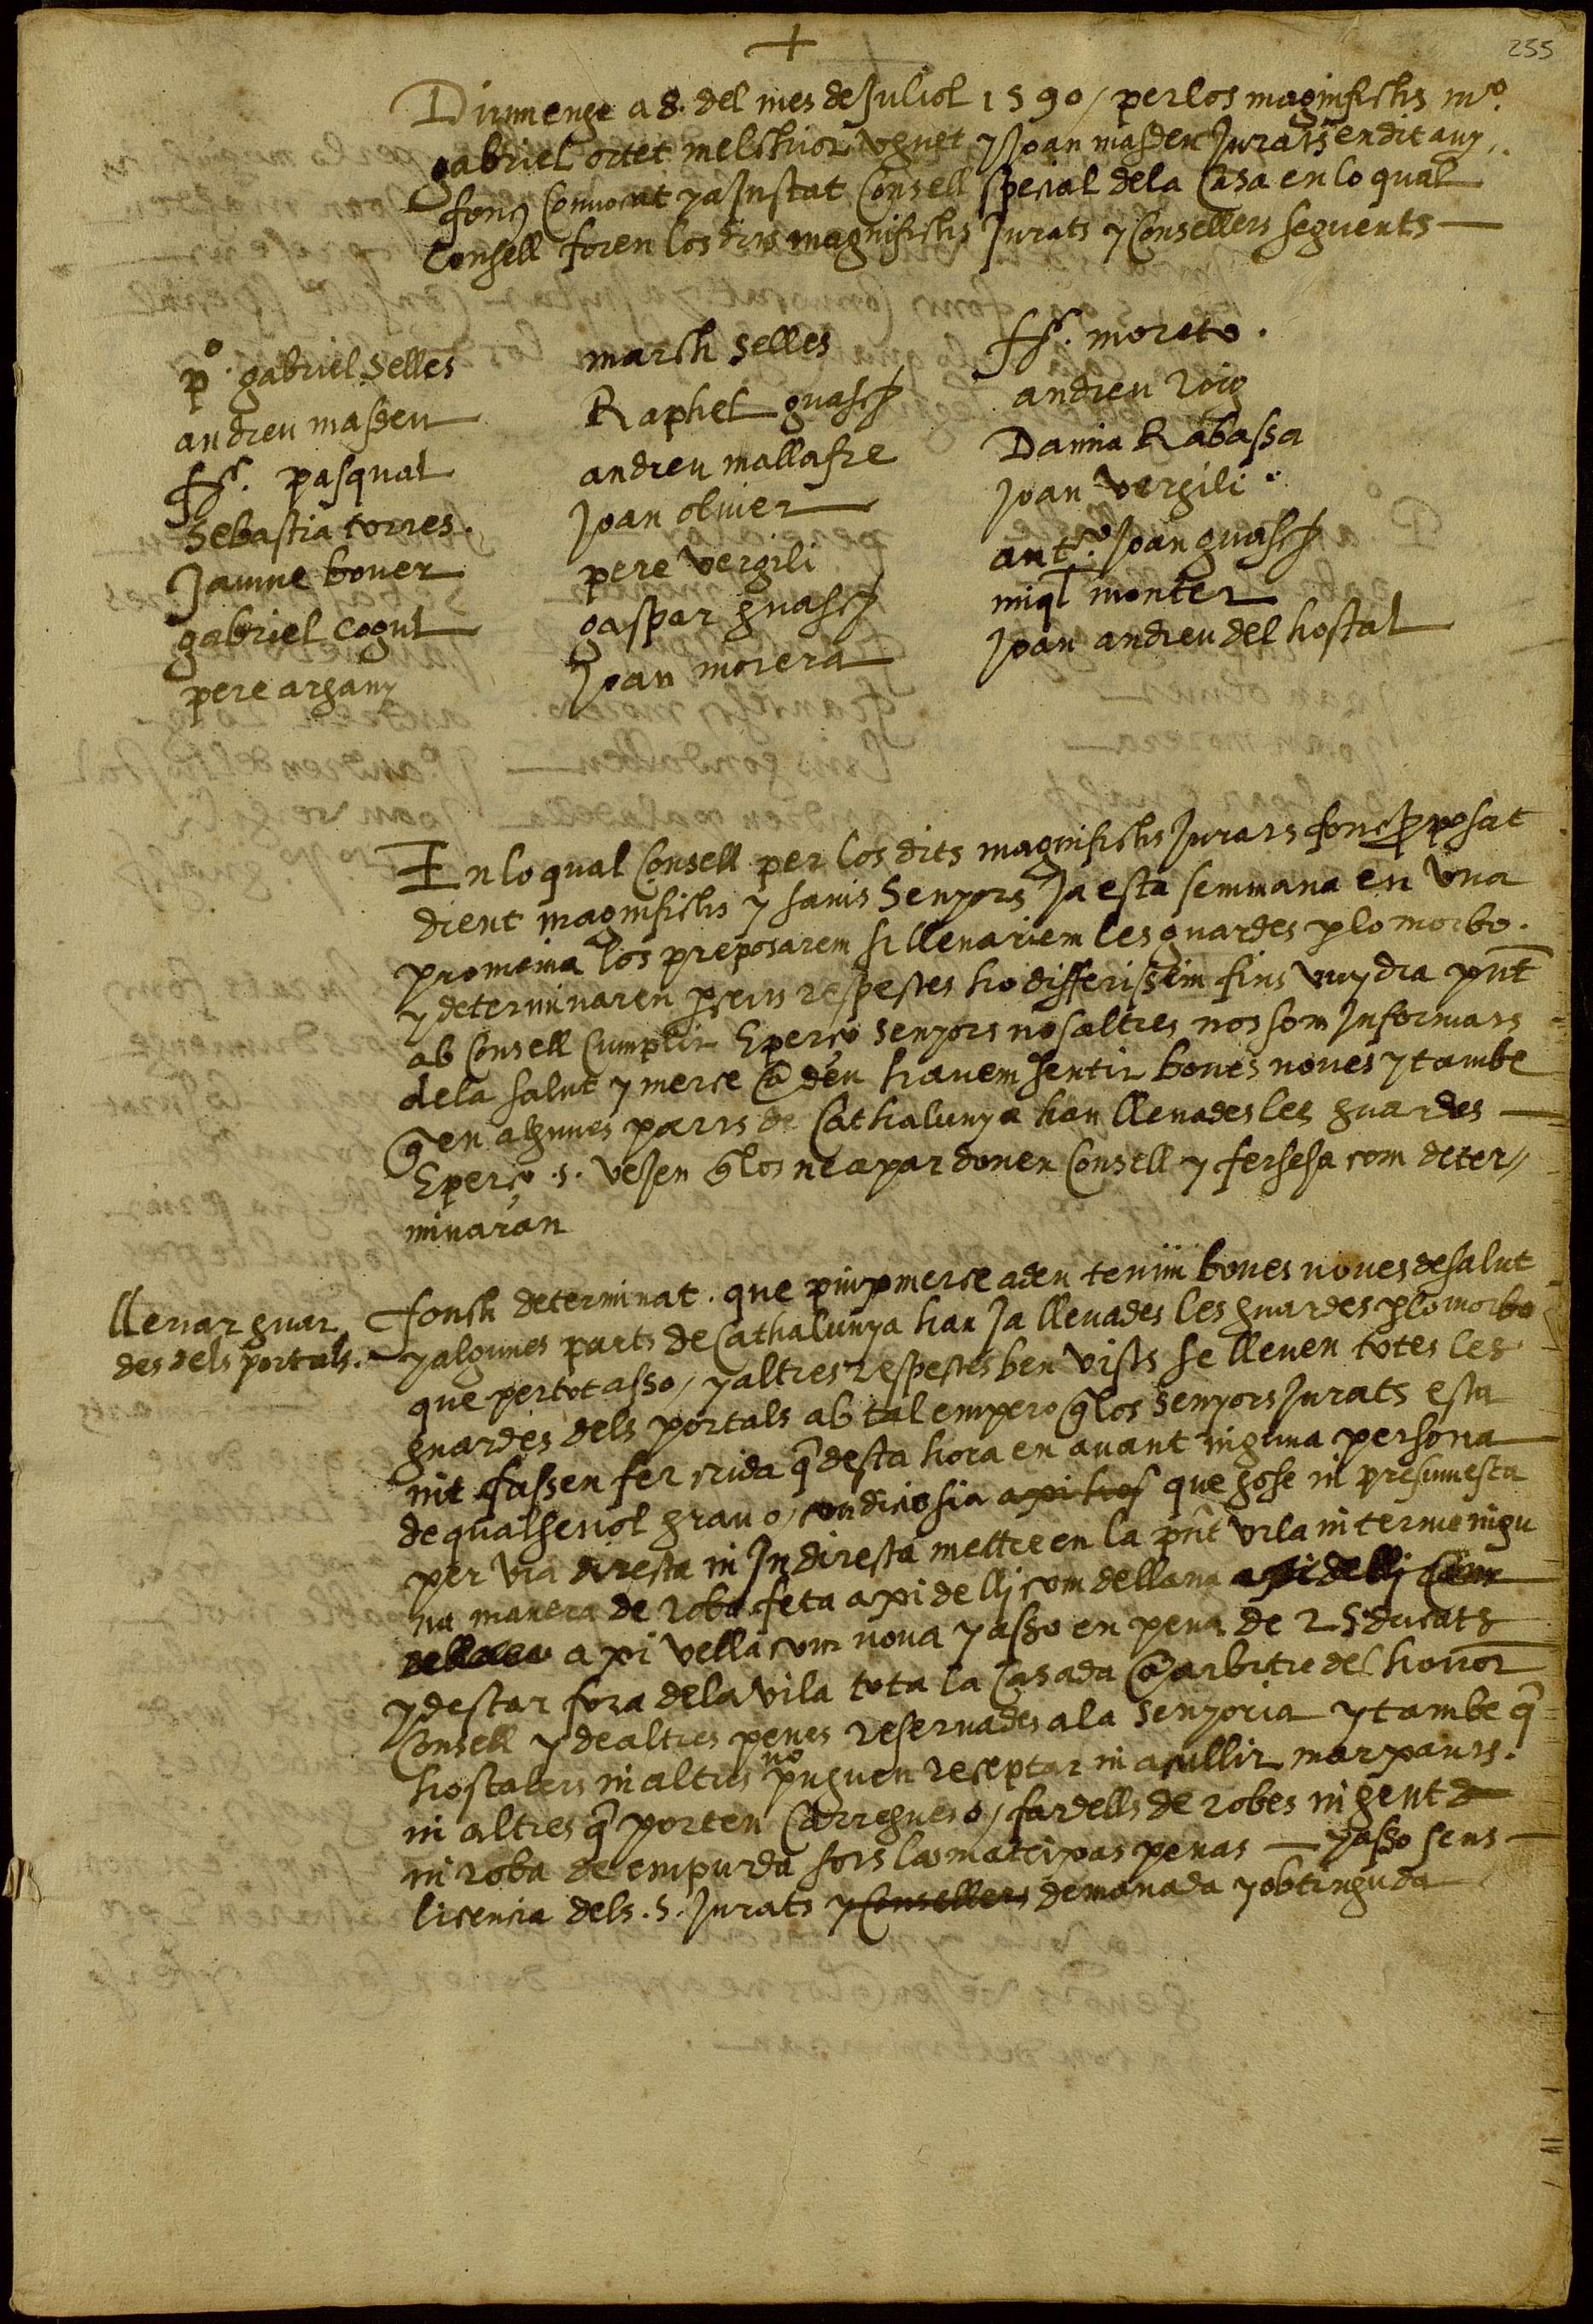 +
255
Diumenge a 8. del mes de Juliol 1590 / per los magnifichs mº.
gabriel ortet melchior veguet y Joan masdeu Jurats en dit any
fonc Convocat y aJustat Consell special de la Casa en lo qual
Consell foren los dits magnifichs Jurats y Consellers seguents —
pº. gabriel selles
andreu masdeu
ffr. pasqual
sebastia torres.
Jaume bover
gabriel cogul
pere argany
march selles
Raphel guasch
andreu mallafre
Joan oliver
pere vergili
gaspar guasch
Joan morera
ffr. moreto.
andreu roig
Damia Rabassa
Joan vergili
antº. Joan guasch
miql monter
Joan andreu del hostal
En lo qual Consell per los dits magnifichs Jurats fonc pposat
dient magnifichs y savis Senyors Ja esta semmana en una
promenia los preposarem si llevariem les guardes p lo morbo.
y determinaren p certs respectes ho differissem fins vuy dia pnt
ab Consell Cumplir E perço senyors nosaltres nos som Informats
de la salut y merce a deu havem sentir bones noves y tambe
q en algunes parts de Cathalunya han llevades les guardes —
E perço .s. vejen q los ne apar donen Consell y ferse ha com deter//
minaran
llevar guar
des dels portals.
fonch determinat. que puix p merce a deu tenim bones noves de salut
y algunes parts de Cathalunya han Ja llevades les guardes p lo morbo
que per tot asso / y altres respectes ben vists se lleven totes les
guardes dels portals ab tal empero q los senyors Jurats esta
nit fassen fer crida q desta hora en avant ninguna persona
de qualsevol grau o / condicio sia que gose ni presumesca
per via directa ni Indirecta mettre en la pnt vila ni terme ningu
na manera de roba feta axi de lli com de llana axi de lli Com
de llana axi vella com nova y asso en pena de 25 ducats
y de star fora de la vila tota la Casada a arbitre del honor
Consell y de altres penes reservades a la senyoria y tambe q
hostalers ni altres no puguen receptar ni acullir marxants.
ni altres q porten Carregues o / fardells de robes ni gent d
ni roba de empurda sots las mateixas penas — y asso sens —
licencia dels .s. Jurats y Consellers demanada y obtinguda